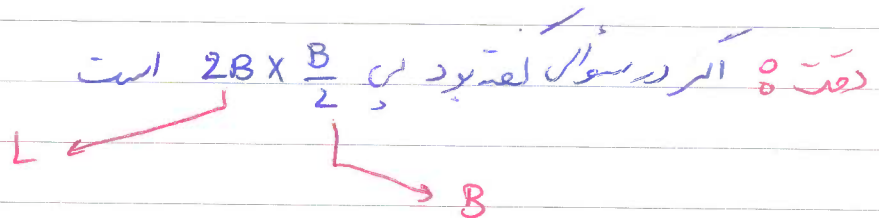 دقت : اگر در سوال گفته بود پی 2B × B/2 است
L
B